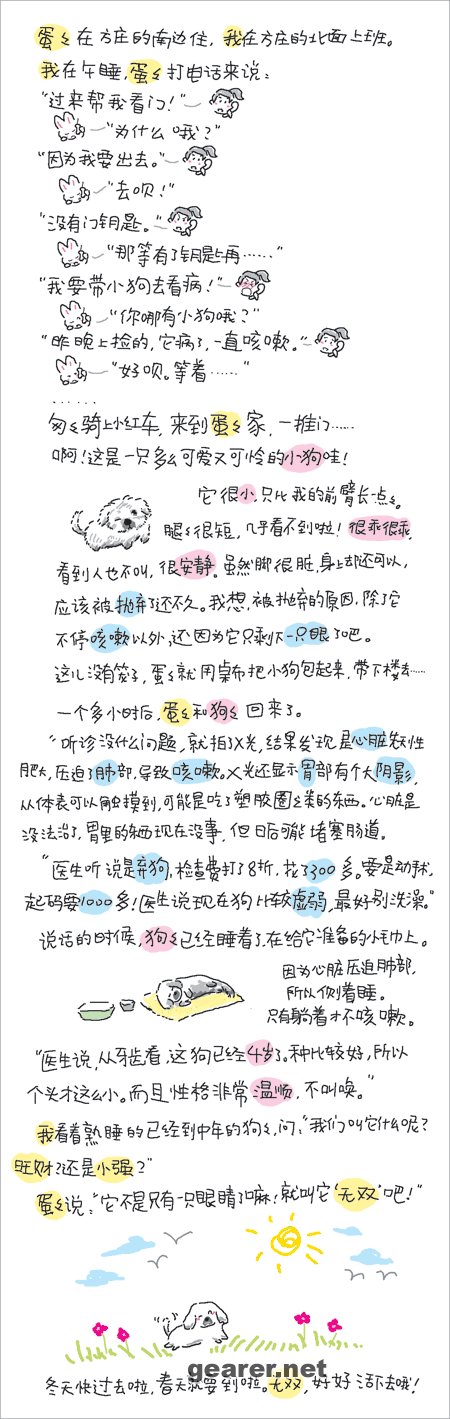 蛋々在方庄的南边住，我在方庄的北面上班。
我在午睡，蛋々打电话来说：
“过来帮我看门！”
“为什么哦？”
“因为我要出去。”
“去呗！”
“没有门钥匙。”
“那等有了钥匙再……”
“我要带小狗去看病！”
“你哪有小狗哦？”
“昨晚上捡的，它病了，一直咳嗽。”
“好呗。等着……”
……
匆々骑上小红车，来到蛋々家，一推门……
啊！这是一只多么可爱又可怜的小狗哇！
它很小，只比我的前臂长一点々。
腿々很短，几乎看不到啦！很乖很乖，
看到人也不叫，很安静。虽然脚很脏，身上却还可以，
应该被抛弃了还不久。我想，被抛弃的原因，除了它
不停咳嗽以外，还因为它只剩下一只眼了吧。
这儿没有笼子，蛋々就用桌布把小狗包起来，带下楼去……
一个多小时后，蛋々和狗々回来了。
“听诊没什么问题，就拍了X光，结果发现是心脏先天性
肥大，压迫了肺部，导致咳嗽。X光还显示胃部有个大阴影，
从体表可以触摸到，可能是吃了塑胶圈之类的东西。心脏是
没法治了，胃里的东西现在没事，但日后可能堵塞肠道。
“医生听说是弃狗，检查费打了8折，花了300多。要是动手术，
起码要1000多！医生说现在狗比较虚弱，最好别洗澡。”
说话的时候，狗々已经睡着了，在给它准备的小毛巾上。
因为心脏压迫肺部，
所以侧着睡。
只有躺着才不咳嗽。
“医生说，从牙齿看，这狗已经4岁了。种比较好，所以
个头才这么小。而且性格非常温顺，不叫唤。”
我看着熟睡的已经到中年的狗々，问：“我们叫它什么呢？
旺财？还是小强？”
蛋々说：“它不是只有一只眼睛了嘛！就叫它‘无双’吧！”
gearer.net
冬天快过去啦，春天就要到啦。无双，好好活下去哦！